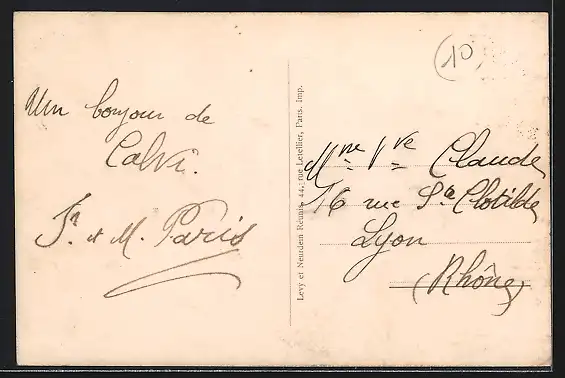 Un bonjour de
Calvi.
Jn. et M. Paris
Levy et Neurdein Réunis, 44, rue Letellier, Paris. Imp.
10
Mme Vve Claude
16 rue Ste Clotilde
Lyon
(Rhône)